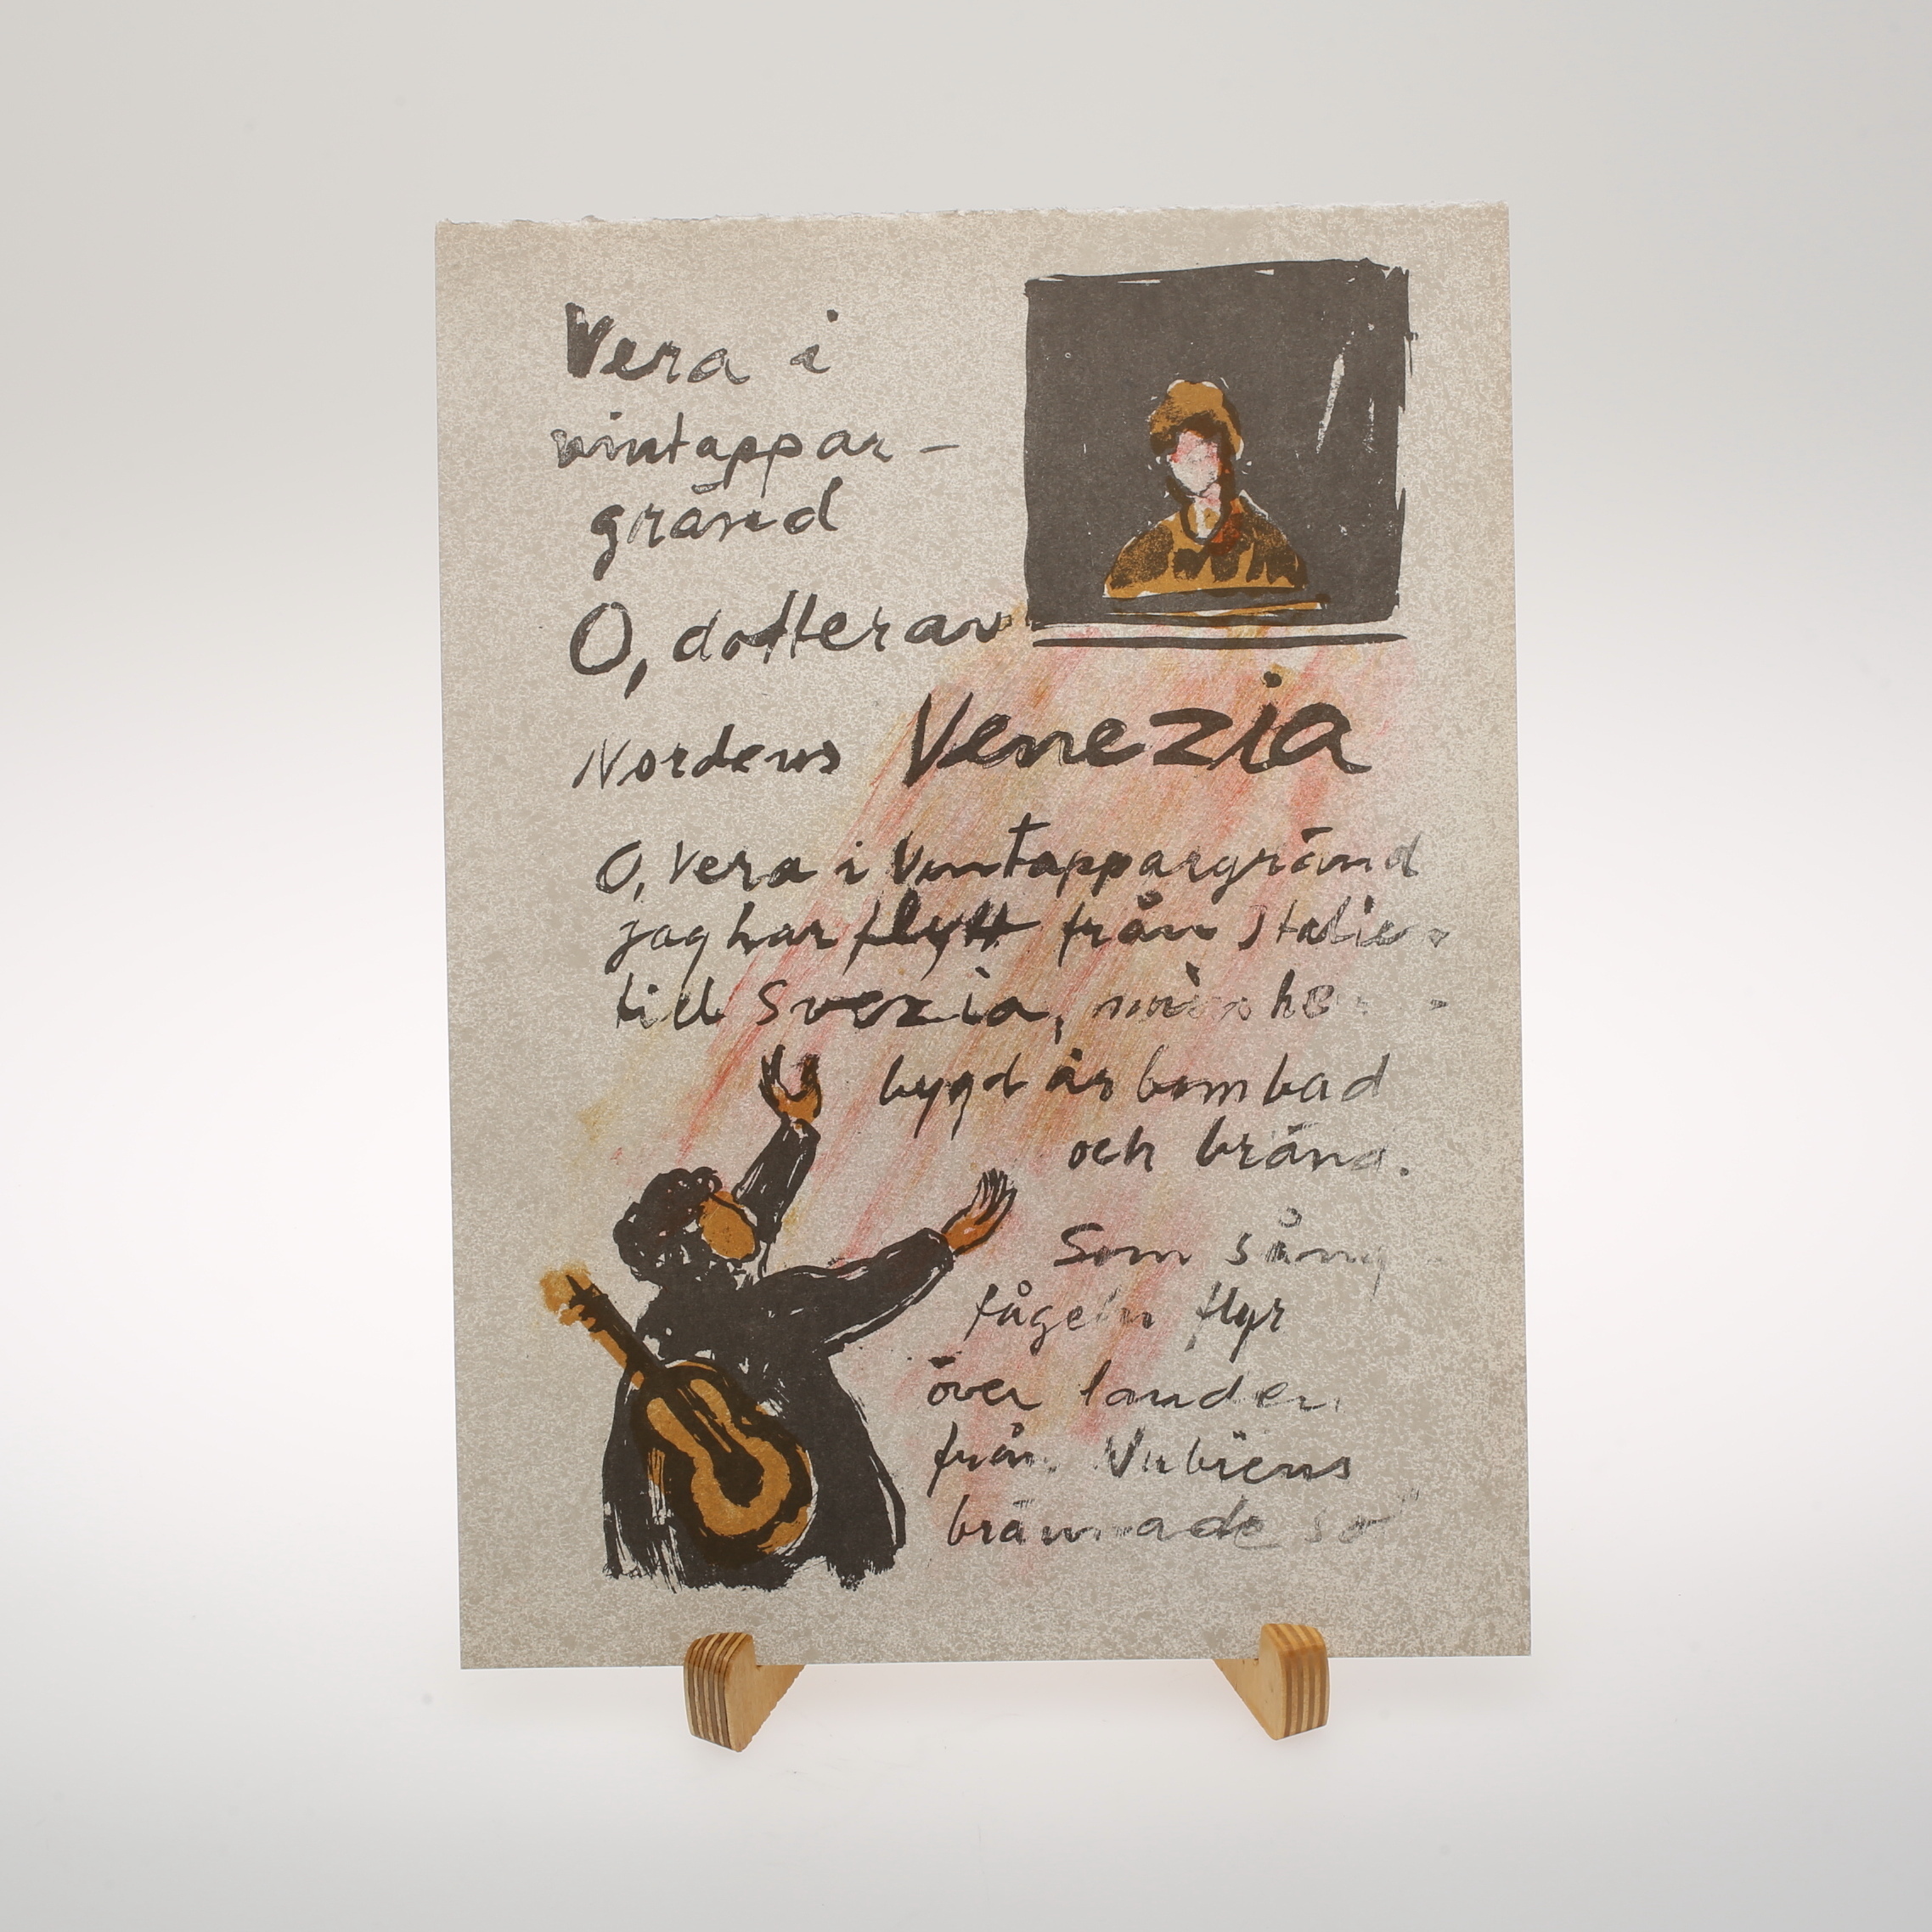 Vera i
vintappar-
gränd
O, dotter av
Nordens Venezia
O, Vera i Vintappargränd
jag har flytt från Italien
till Svezia, min hem-
bygd är bombad
och bränd.
Som sång
fågeln flyr
över landen
från Nubiens
brännade